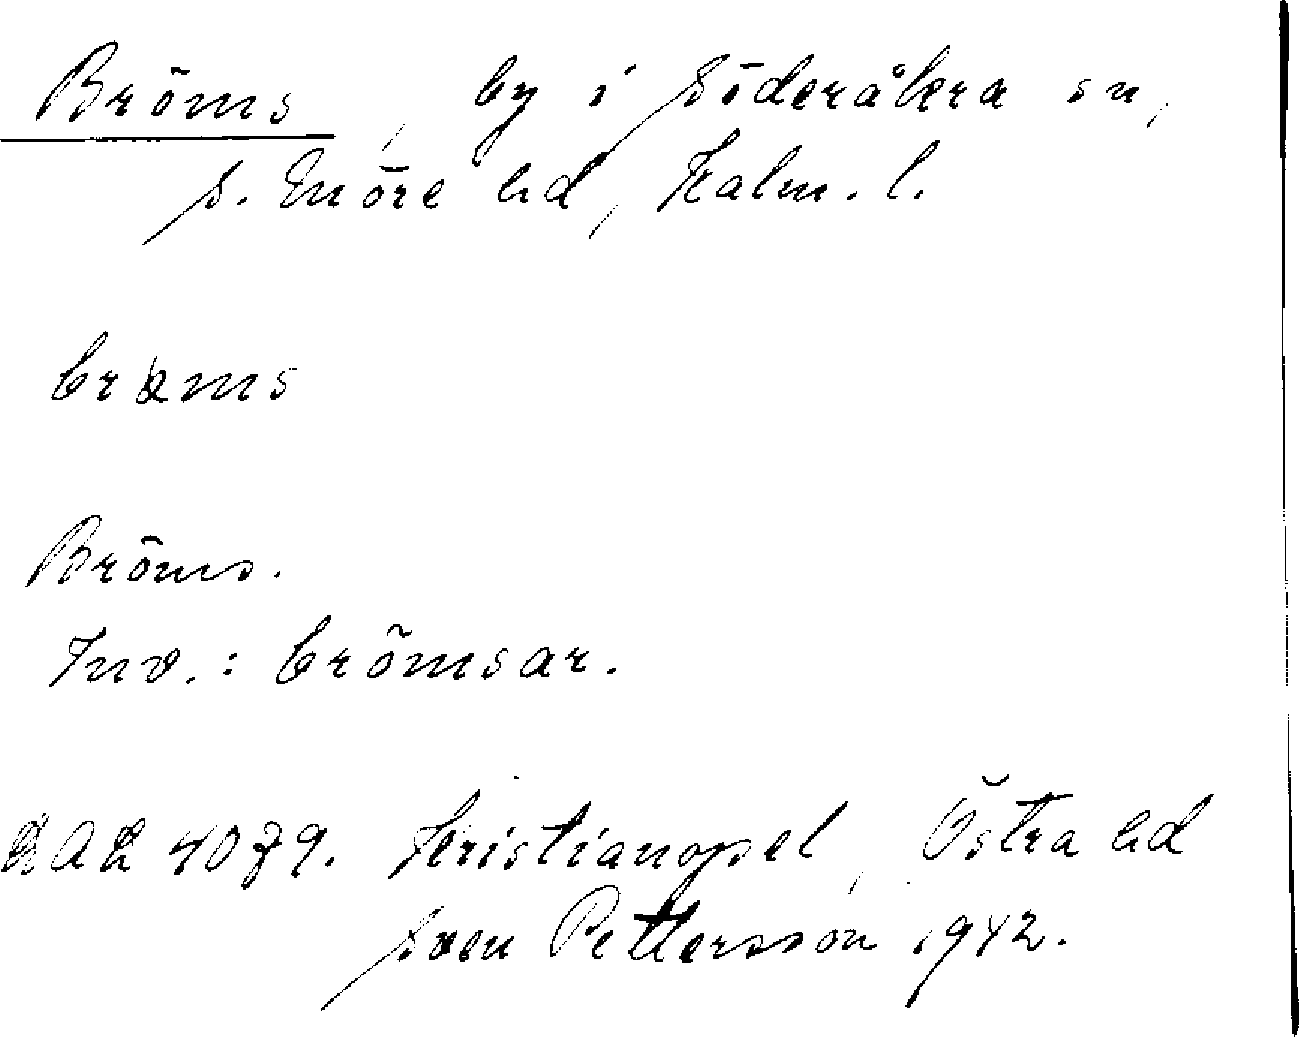 Bröms, by i Söderåkra sn,
S. Möre hd, Kalm. l.
Bröms.
Inv.: brömsar.
4079. Kristianopel, Östra hd
Sven Pettersson 1942.